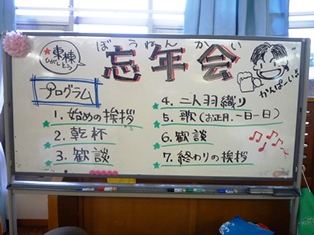 東棟
ぼうねんかい
忘年会
かんぱーい
プログラム
1. 始めの挨拶
2. 乾杯
3. 歓談
4. 二人羽織り
5. 歌(お正月、一日一日)
6. 歓談
7. 終わりの挨拶